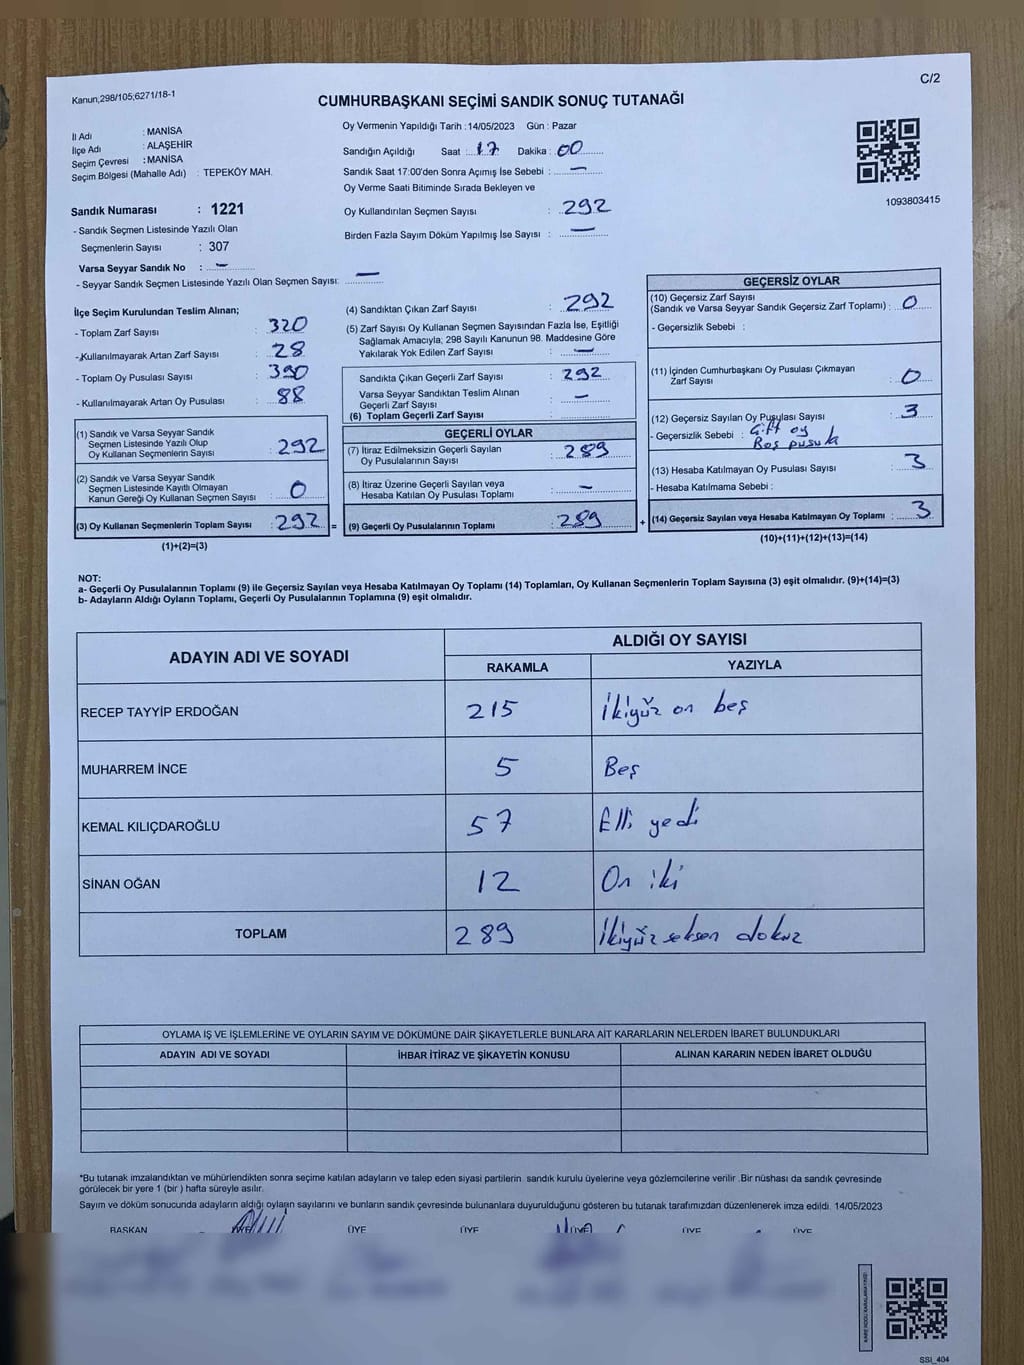 C/2
Kanun;298/105;6271/18-1
CUMHURBAŞKANI SEÇİMİ SANDIK SONUÇ TUTANAĞI
İl Adı : MANİSA
İlçe Adı : ALAŞEHİR
Seçim Çevresi : MANİSA
Seçim Bölgesi (Mahalle Adı) : TEPEKÖY MAH.
Sandık Numarası : 1221
- Sandık Seçmen Listesinde Yazılı Olan
Seçmenlerin Sayısı : 307
Varsa Seyyar Sandık No : —
- Seyyar Sandık Seçmen Listesinde Yazılı Olan Seçmen Sayısı: —
Oy Vermenin Yapıldığı Tarih : 14/05/2023 Gün : Pazar
Sandığın Açıldığı Saat : 17 Dakika : 00
Sandık Saat 17:00'den Sonra Açımış İse Sebebi : —
Oy Verme Saati Bitiminde Sırada Bekleyen ve
Oy Kullandırılan Seçmen Sayısı : 292
Birden Fazla Sayım Döküm Yapılmış İse Sayısı : —
1093803415
İlçe Seçim Kurulundan Teslim Alınan;
- Toplam Zarf Sayısı : 320
- Kullanılmayarak Artan Zarf Sayısı : 28
- Toplam Oy Pusulası Sayısı : 390
- Kullanılmayarak Artan Oy Pusulası : 88
(1) Sandık ve Varsa Seyyar Sandık
Seçmen Listesinde Yazılı Olup
Oy Kullanan Seçmenlerin Sayısı : 292
(2) Sandık ve Varsa Seyyar Sandık
Seçmen Listesinde Kayıtlı Olmayan
Kanun Gereği Oy Kullanan Seçmen Sayısı : 0
(3) Oy Kullanan Seçmenlerin Toplam Sayısı : 292 =
(1)+(2)=(3)
(4) Sandıktan Çıkan Zarf Sayısı : 292
(5) Zarf Sayısı Oy Kullanan Seçmen Sayısından Fazla İse, Eşitliği
Sağlamak Amacıyla; 298 Sayılı Kanunun 98. Maddesine Göre
Yakılarak Yok Edilen Zarf Sayısı : —
Sandıkta Çıkan Geçerli Zarf Sayısı : 292
Varsa Seyyar Sandıktan Teslim Alınan
Geçerli Zarf Sayısı : —
(6) Toplam Geçerli Zarf Sayısı :
GEÇERLİ OYLAR
(7) İtiraz Edilmeksizin Geçerli Sayılan
Oy Pusulalarının Sayısı : 289
(8) İtiraz Üzerine Geçerli Sayılan veya
Hesaba Katılan Oy Pusulası Toplamı : —
(9) Geçerli Oy Pusulalarının Toplamı : 289 +
GEÇERSİZ OYLAR
(10) Geçersiz Zarf Sayısı
(Sandık ve Varsa Seyyar Sandık Geçersiz Zarf Toplamı) : 0
- Geçersizlik Sebebi :
(11) İçinden Cumhurbaşkanı Oy Pusulası Çıkmayan
Zarf Sayısı : 0
(12) Geçersiz Sayılan Oy Pusulası Sayısı : 3
- Geçersizlik Sebebi : Çift oy
Boş pusula
(13) Hesaba Katılmayan Oy Pusulası Sayısı : 3
- Hesaba Katılmama Sebebi :
(14) Geçersiz Sayılan veya Hesaba Katılmayan Oy Toplamı : 3
(10)+(11)+(12)+(13)=(14)
NOT:
a- Geçerli Oy Pusulalarının Toplamı (9) ile Geçersiz Sayılan veya Hesaba Katılmayan Oy Toplamı (14) Toplamları, Oy Kullanan Seçmenlerin Toplam Sayısına (3) eşit olmalıdır. (9)+(14)=(3)
b- Adayların Aldığı Oyların Toplamı, Geçerli Oy Pusulalarının Toplamına (9) eşit olmalıdır.
ADAYIN ADI VE SOYADI
ALDIĞI OY SAYISI
RAKAMLA YAZIYLA
RECEP TAYYİP ERDOĞAN 215 İkiyüz on beş
MUHARREM İNCE 5 Beş
KEMAL KILIÇDAROĞLU 57 Elli yedi
SİNAN OĞAN 12 On iki
TOPLAM 289 İkiyüz seksen dokuz
OYLAMA İŞ VE İŞLEMLERİNE VE OYLARIN SAYIM VE DÖKÜMÜNE DAİR ŞİKAYETLERLE BUNLARA AİT KARARLARIN NELERDEN İBARET BULUNDUKLARI
ADAYIN ADI VE SOYADI İHBAR İTİRAZ VE ŞİKAYETİN KONUSU ALINAN KARARIN NEDEN İBARET OLDUĞU
*Bu tutanak imzalandıktan ve mühürlendikten sonra seçime katılan adayların ve talep eden siyasi partilerin sandık kurulu üyelerine veya gözlemcilerine verilir .Bir nüshası da sandık çevresinde
görülecek bir yere 1 (bir ) hafta süreyle asılır.
Sayım ve döküm sonucunda adayların aldığı oyların sayılarını ve bunların sandık çevresinde bulunanlara duyurulduğunu gösteren bu tutanak tarafımızdan düzenlenerek imza edildi. 14/05/2023
BAŞKAN ÜYE ÜYE ÜYE ÜYE ÜYE ÜYE
SSI_404